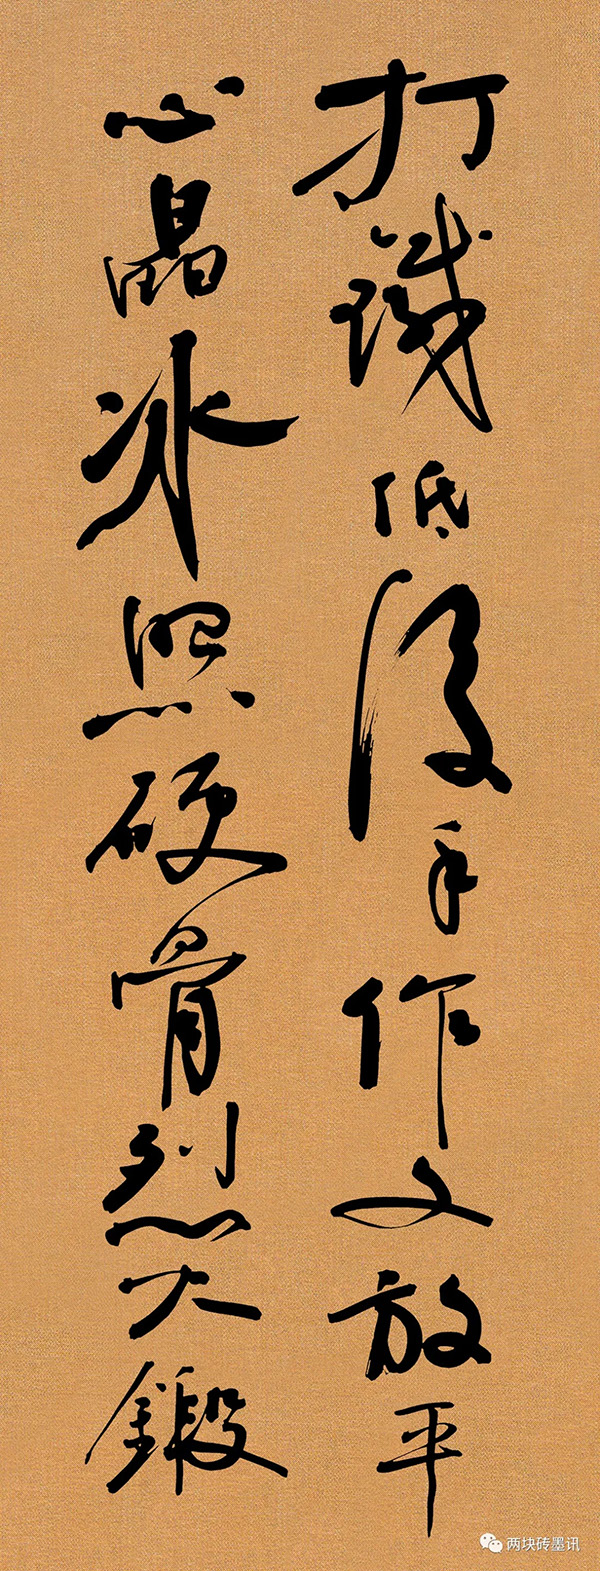 打鐵低後手作文放平
心晶冰照硬骨烈火鍛
两块砖墨讯